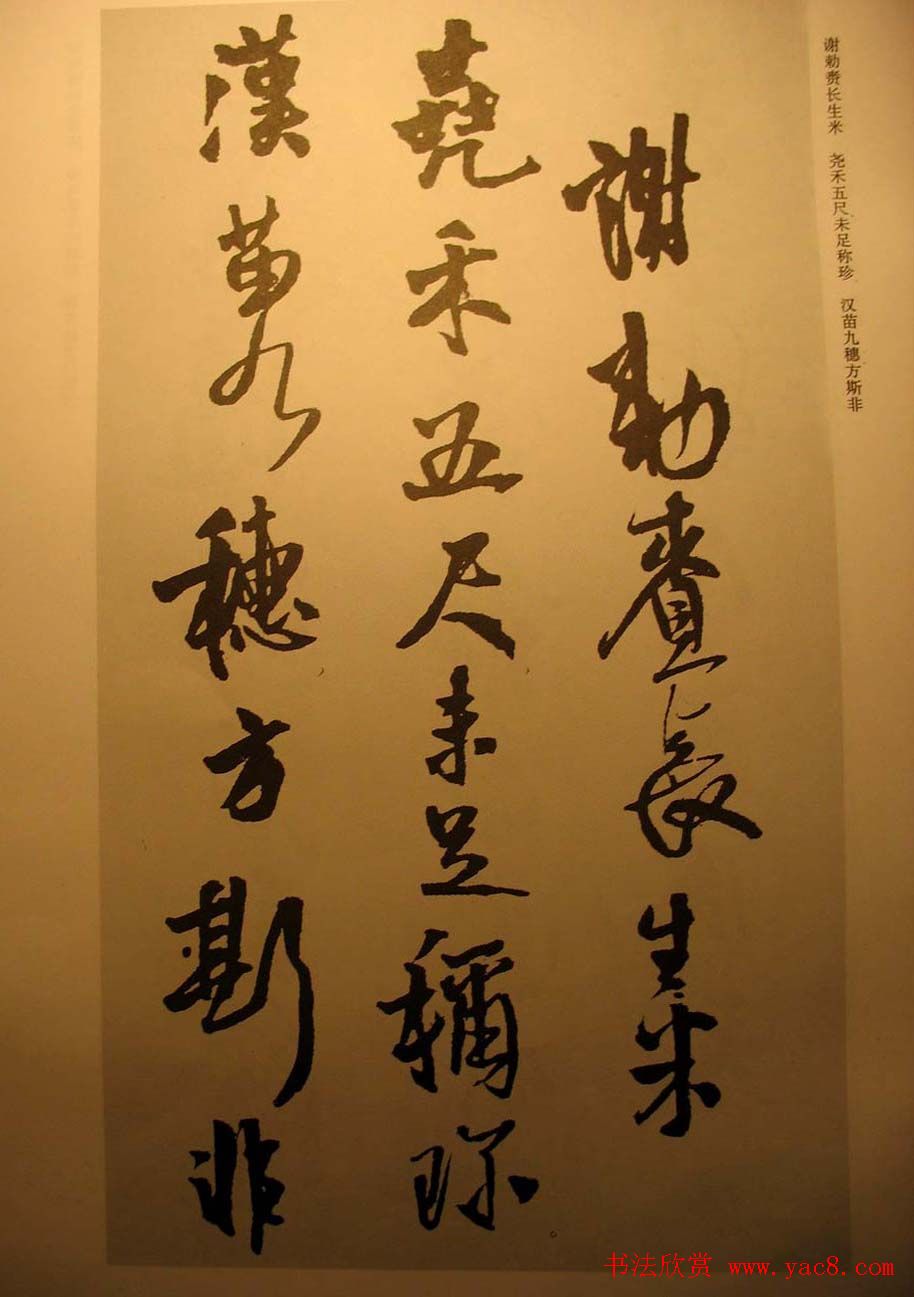 谢勅赉长生米 尧禾五尺未足称珍 汉苗九穗方斯非
謝勅賚長生米
堯禾五尺未足稱珍
漢苗九穗方斯非
书法欣赏 www.yac8.com